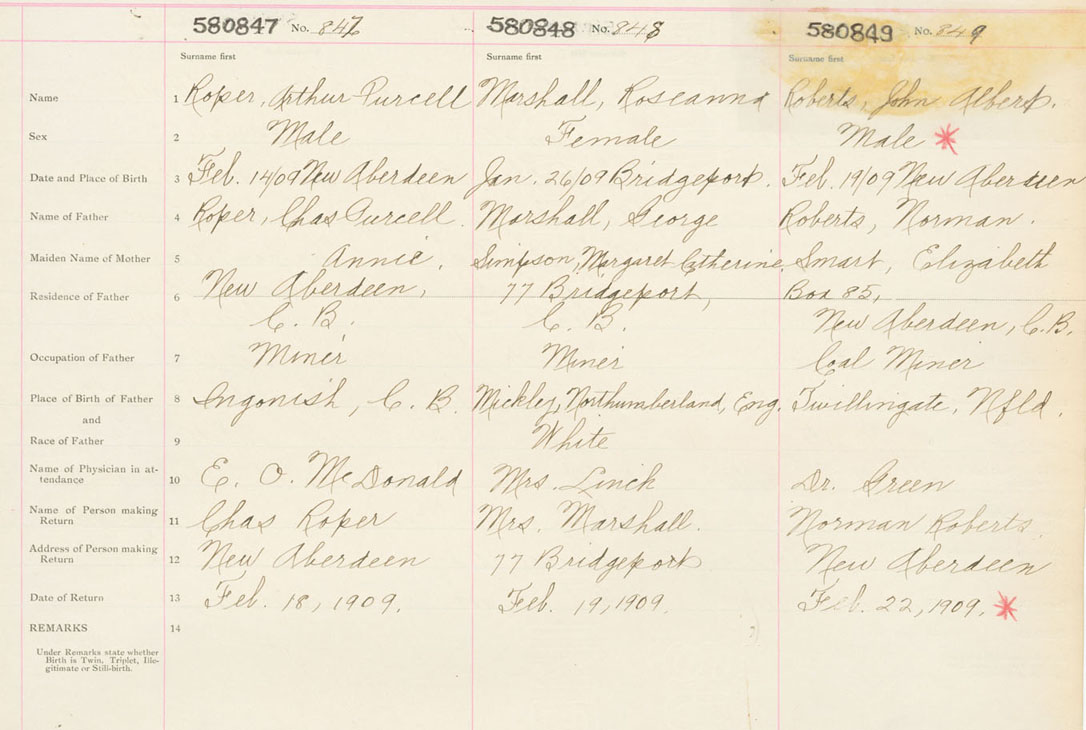 580847 No. 847 580848 No. 848 580849 No. 849
Surname first Surname first Surname first
Name 1 Roper, Arthur Purcell Marshall, Roseanna Roberts, John Albert.
Sex 2 Male Female Male *
Date and Place of Birth 3 Feb. 14/09 New Aberdeen Jan. 26/09 Bridgeport. Feb. 19/09 New Aberdeen
Name of Father 4 Roper, Chas Purcell. Marshall, George Roberts, Norman.
Maiden Name of Mother 5 Annie. Simpson, Margaret Catherine. Smart, Elizabeth
Residence of Father 6 New Aberdeen, 77 Bridgeport, Box 85,
C. B. C. B. New Aberdeen, C.B.
Occupation of Father 7 Miner Miner Coal Miner
Place of Birth of Father 8 Ingonish, C. B. Mickley, Northumberland, Eng. Twillingate, Nfld.
and
Race of Father 9 White
Name of Physician in at-
tendance 10 E. O. McDonald Mrs. Linck Dr. Green
Name of Person making
Return 11 Chas Roper Mrs. Marshall. Norman Roberts.
Address of Person making
Return 12 New Aberdeen 77 Bridgeport New Aberdeen
Date of Return 13 Feb. 18, 1909. Feb. 19, 1909. Feb. 22, 1909. *
REMARKS 14
Under Remarks state whether
Birth is Twin, Triplet, Ille-
gitimate or Still-birth.